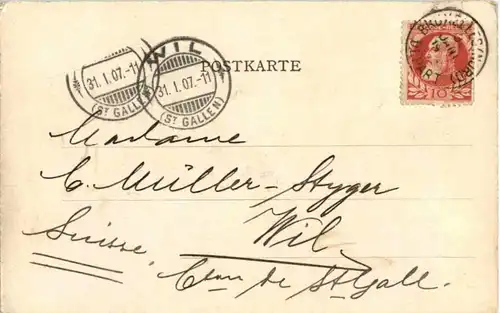 WIL
POSTKARTE
31.I.07.-11
(ST GALLEN)
31.I.07.-11
(ST GALLEN)
10
Madame
C. Müller-Styger
Wil
Suisse,
Cton de St Gall.